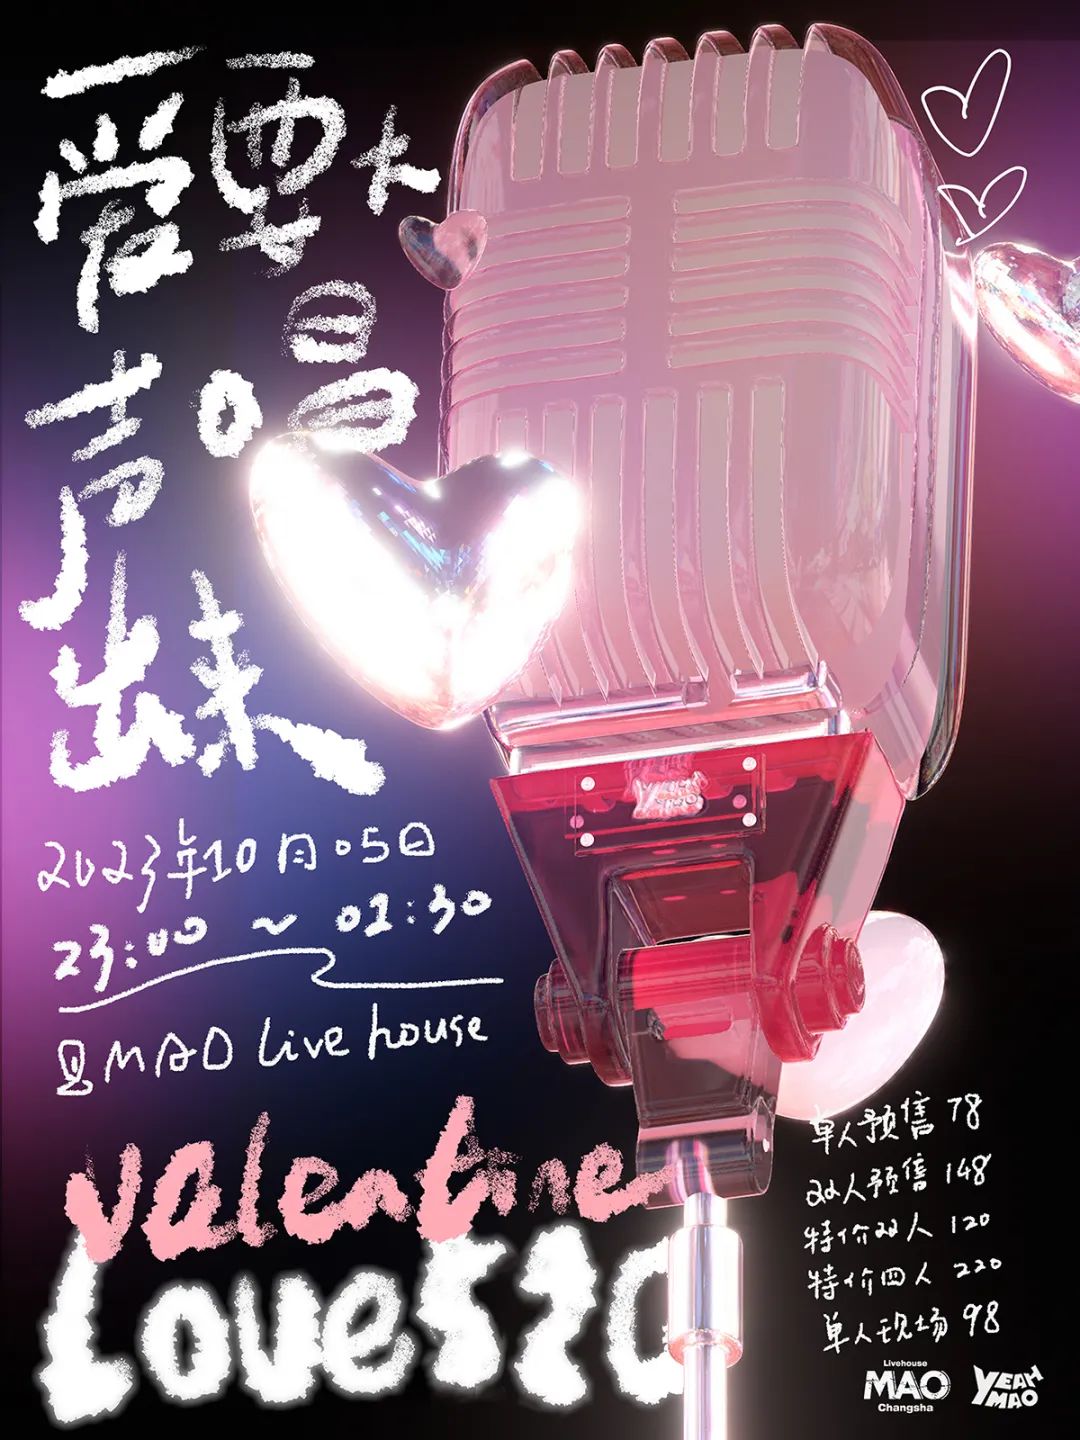 爱要大
声唱
出来
2023年10月05日
23:00 ~ 01:30
MAO Livehouse
Valentine
Love520
单人预售 78
双人预售 148
特价双人 120
特价四人 220
单人现场 98
Livehouse
MAO
Changsha
YEAH
MAO